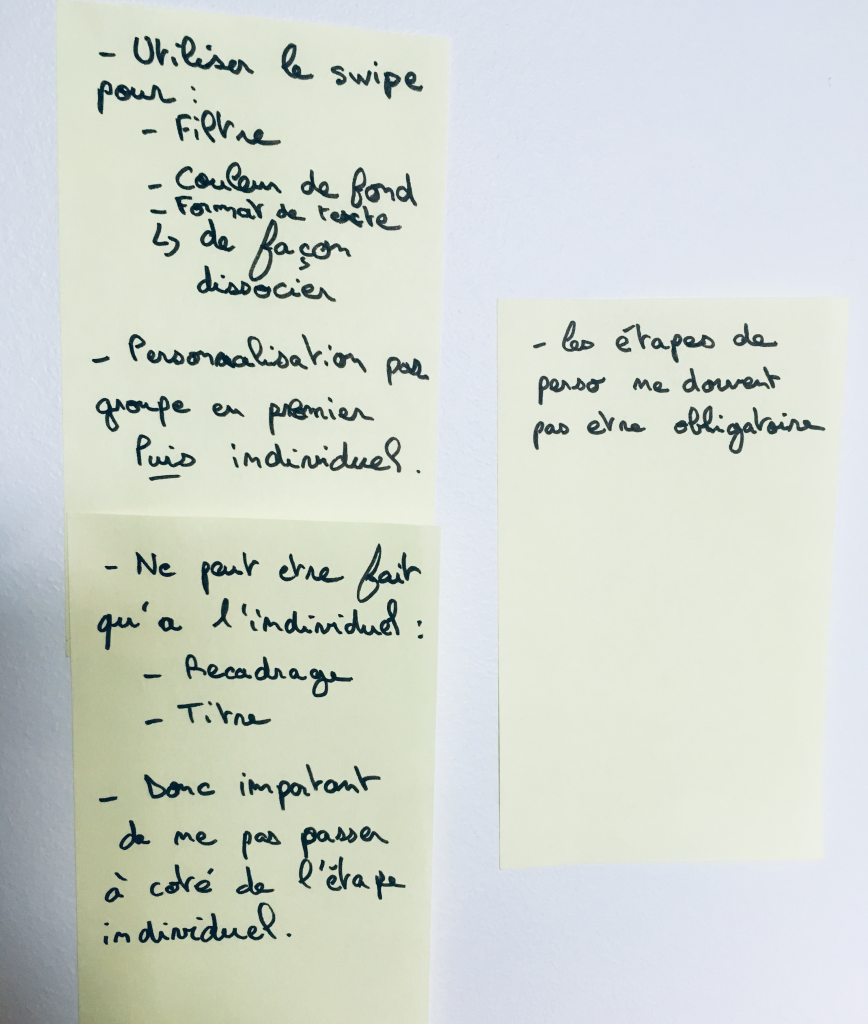 - Utiliser le swipe
pour :
- Filtre
- Couleur de fond
- Format de texte
↳ de façon
dissocier
- Personnalisation par
groupe en premier
Puis individuel.
- Ne peut etre fait
qu'a l'individuel :
- Recadrage
- Titre
- Donc important
de ne pas passer
à coté de l'étape
individuel.
- les étapes de
perso ne doivent
pas etre obligatoire